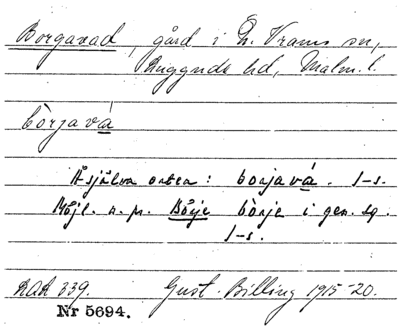 Borgavad, gård i Ö. Vrams sn,
Luggude hd, Malm. l.
bòrjavá
På själva orten: borjavá. I-s.
Möjl. n. pr. Börje börje i gen. sg.
I-s.
DAL 339. Gust. Billing 1915-20.
Nr 5694.